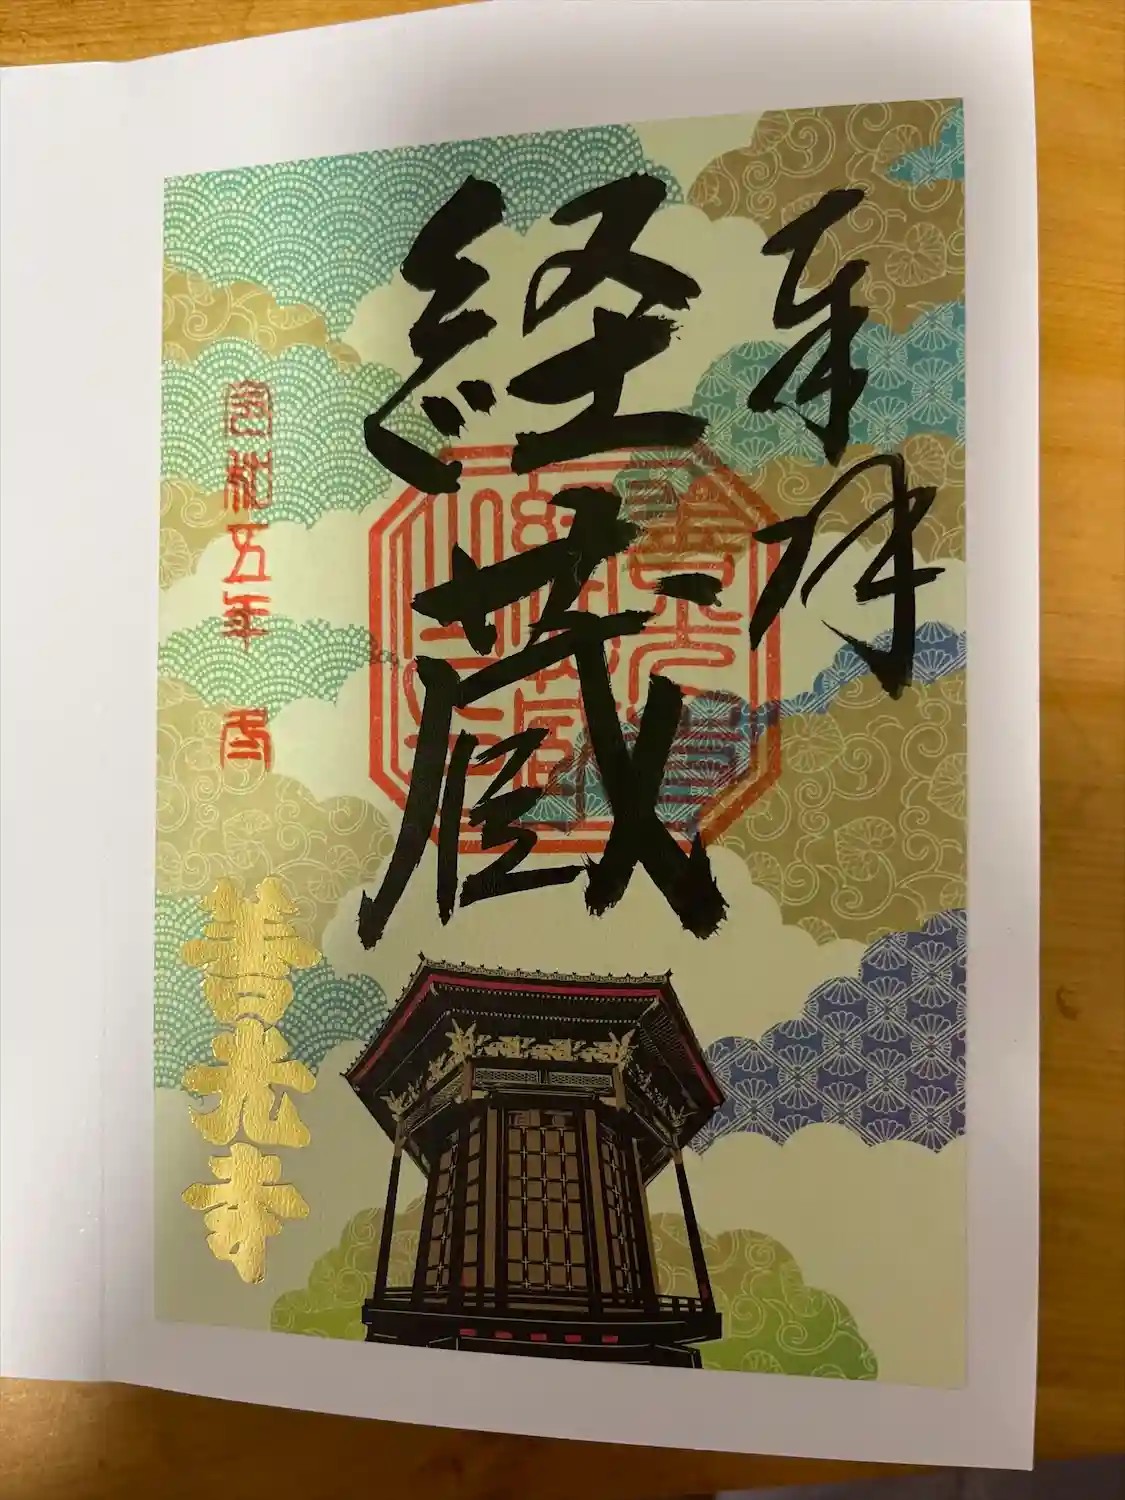 奉拝
経蔵
令和五年
善光寺